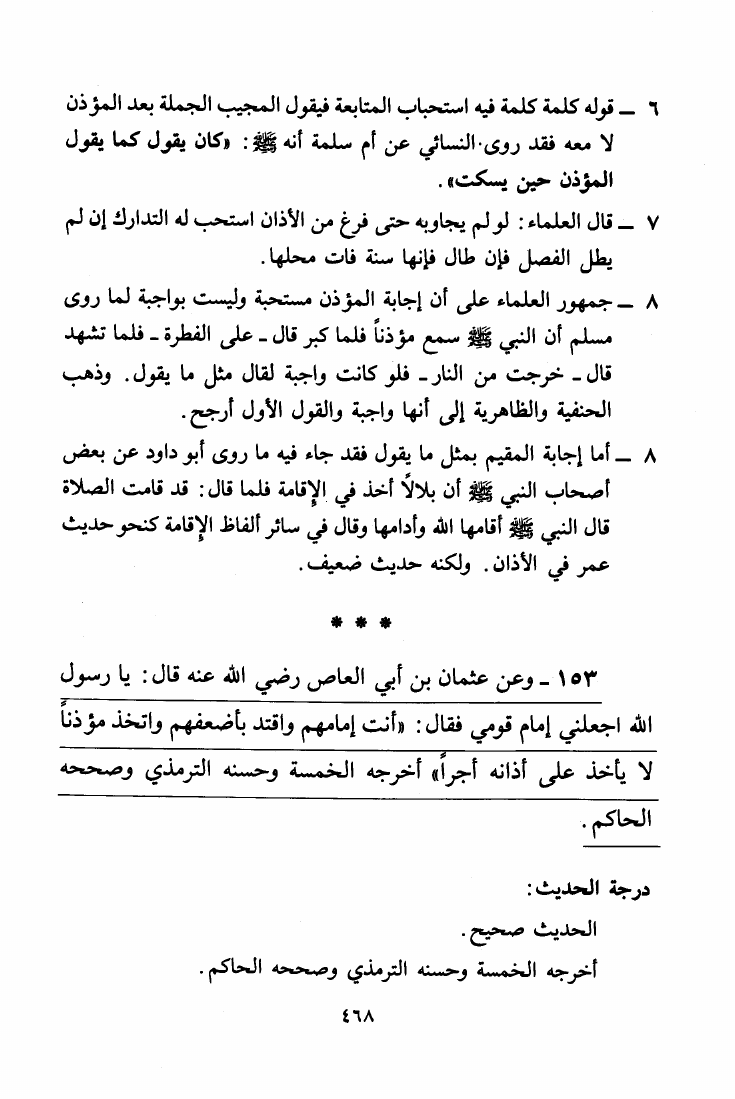 ٦ ــ قوله كلمة كلمة فيه استحباب المتابعة فيقول المجيب الجملة بعد المؤذن
لا معه فقد روى النسائي عن أم سلمة أنه ﷺ: «كان يقول كما يقول
المؤذن حين يسكت».
٧ ــ قال العلماء: لو لم يجاوبه حتى فرغ من الأذان استحب له التدارك إن لم
يطل الفصل فإن طال فإنها سنة فات محلها.
٨ ــ جمهور العلماء على أن إجابة المؤذن مستحبة وليست بواجبة لما روى
مسلم أن النبي ﷺ سمع مؤذناً فلما كبر قال ـ على الفطرة ـ فلما تشهد
قال ـ خرجت من النار ـ فلو كانت واجبة لقال مثل ما يقول. وذهب
الحنفية والظاهرية إلى أنها واجبة والقول الأول أرجح.
٨ ــ أما إجابة المقيم بمثل ما يقول فقد جاء فيه ما روى أبو داود عن بعض
أصحاب النبي ﷺ أن بلالاً أخذ في الإقامة فلما قال: قد قامت الصلاة
قال النبي ﷺ أقامها الله وأدامها وقال في سائر ألفاظ الإقامة كنحو حديث
عمر في الأذان. ولكنه حديث ضعيف.
* * *
١٥٣ ـ وعن عثمان بن أبي العاص رضي الله عنه قال: يا رسول
الله اجعلني إمام قومي فقال: «أنت إمامهم واقتد بأضعفهم واتخذ مؤذناً
لا يأخذ على أذانه أجراً» أخرجه الخمسة وحسنه الترمذي وصححه
الحاكم.
درجة الحديث:
الحديث صحيح.
أخرجه الخمسة وحسنه الترمذي وصححه الحاكم.
٤٦٨